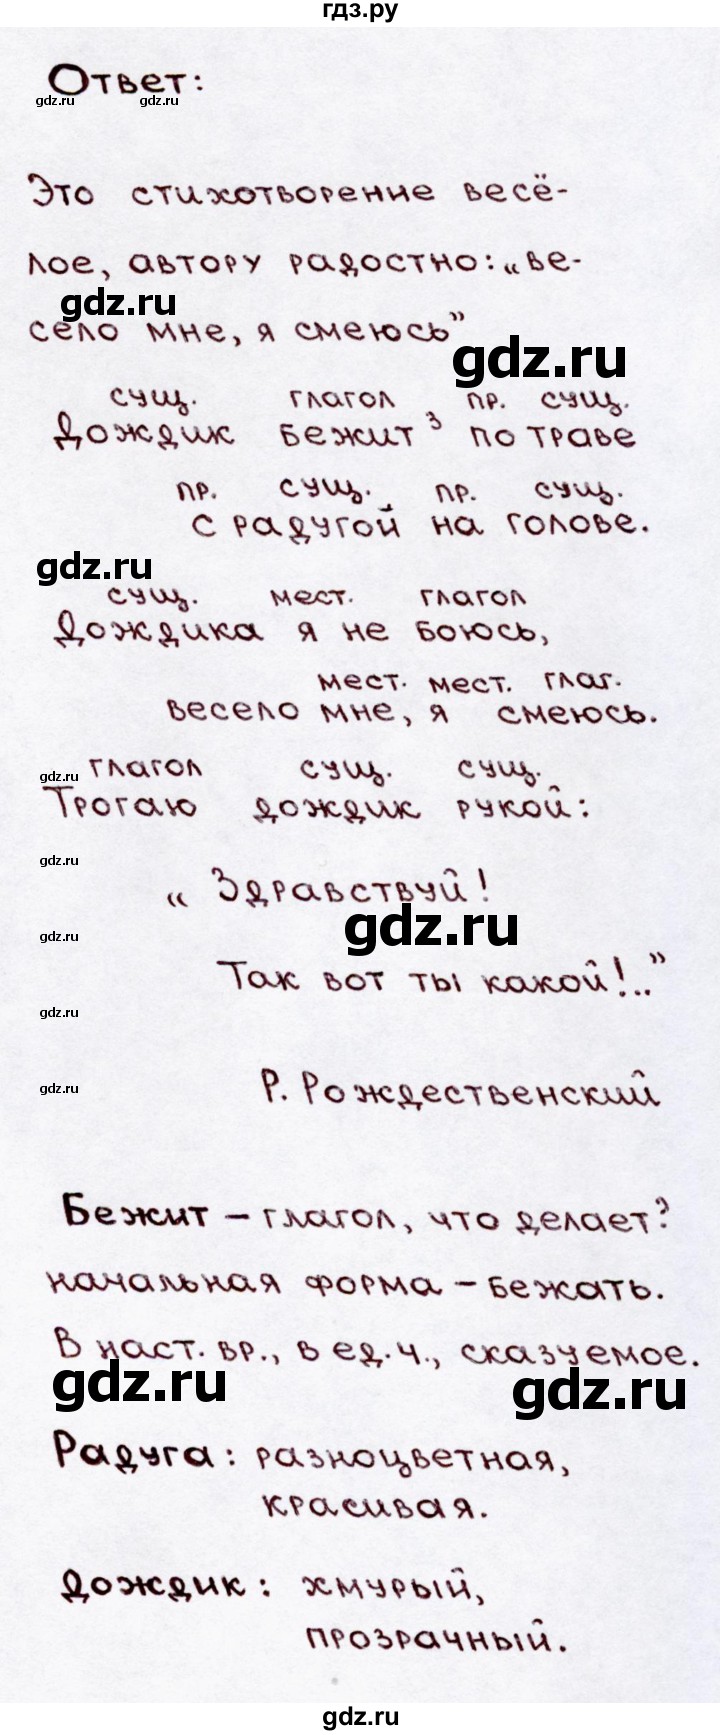 гдз.ру
Ответ:
gdz.ru gdz.ru
Это стихотворение весё-
лое, автору радостно: „ве-
gdz.ru
село мне, я смеюсь”
gdz.ru
сущ. глагол пр. сущ.
Дождик бежит ³ по траве
пр. сущ. пр. сущ.
с радугой на голове.
gdz.ru
сущ. мест. глагол
Дождика я не боюсь,
мест. мест. глаг.
весело мне, я смеюсь.
глагол сущ. сущ.
gdz.ru
Трогаю дождик рукой:
gdz.ru
„ Здравствуй!
gdz.ru
gdz.ru
Так вот ты какой!..”
gdz.ru
gdz.ru
Р. Рождественский
Бежит – глагол, что делает?
начальная форма – бежать.
В наст. вр., в ед. ч., сказуемое.
gdz.ru gdz.ru
Радуга: разноцветная,
красивая.
Дождик: хмурый,
прозрачный.
gdz.ru